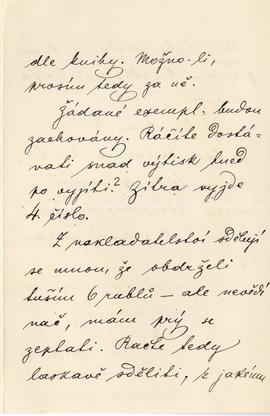 dle knihy. Možno-li,
prosím tedy za ně.
Žádané exempl. budou
zachovány. Ráčíte dostá-
vati snad výtisk hned
po vyjití? Zítra vyjde
4. číslo.
Z nakladatelství sdělují
se mnou, že obdrželi
tuším 6 rublů – ale nevědí
nač, mám prý se
zeptati. Račte tedy
laskavě sděliti, z jakému